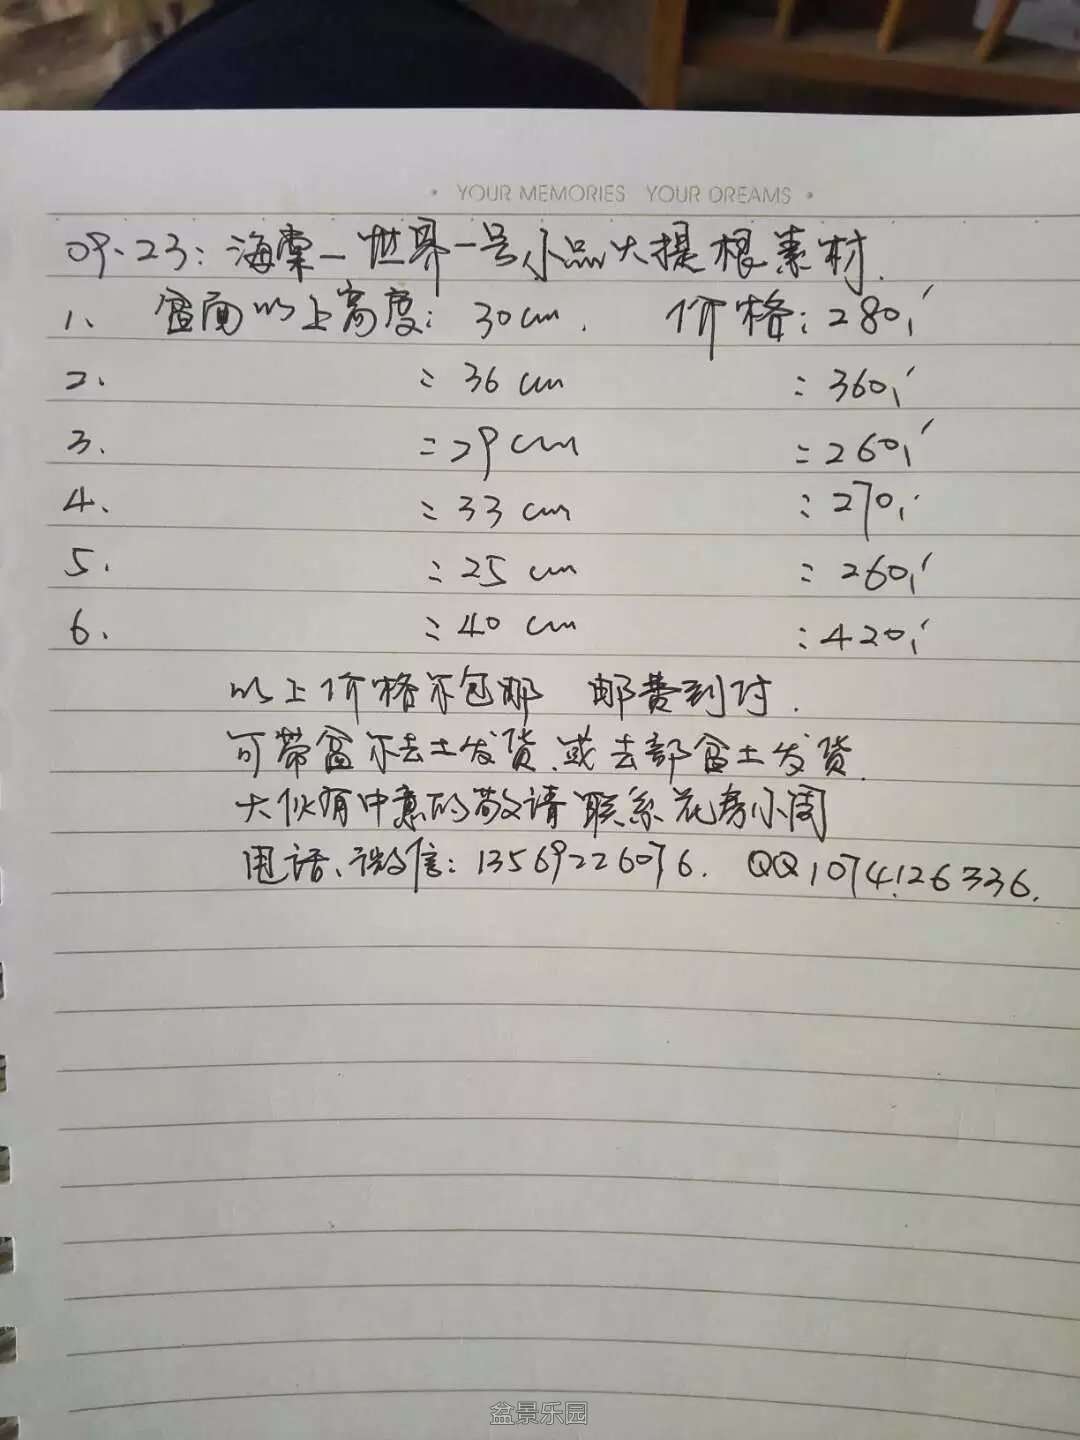 · YOUR MEMORIES YOUR DREAMS ·
09.23：海棠—世界一号小品大提根素材.
1、盆面以上高度：30cm. 价格：280,
2、：36cm ：360,
3、：29cm ：260,
4、：33cm ：270,
5、：25cm ：260,
6、：40cm ：420,
以上价格不包邮 邮费到付.
可带盆不去土发货、或去部盆土发货.
大伙有中意的敬请联系花房小周
电话、微信：13569226076. QQ1074126336.
盆景乐园